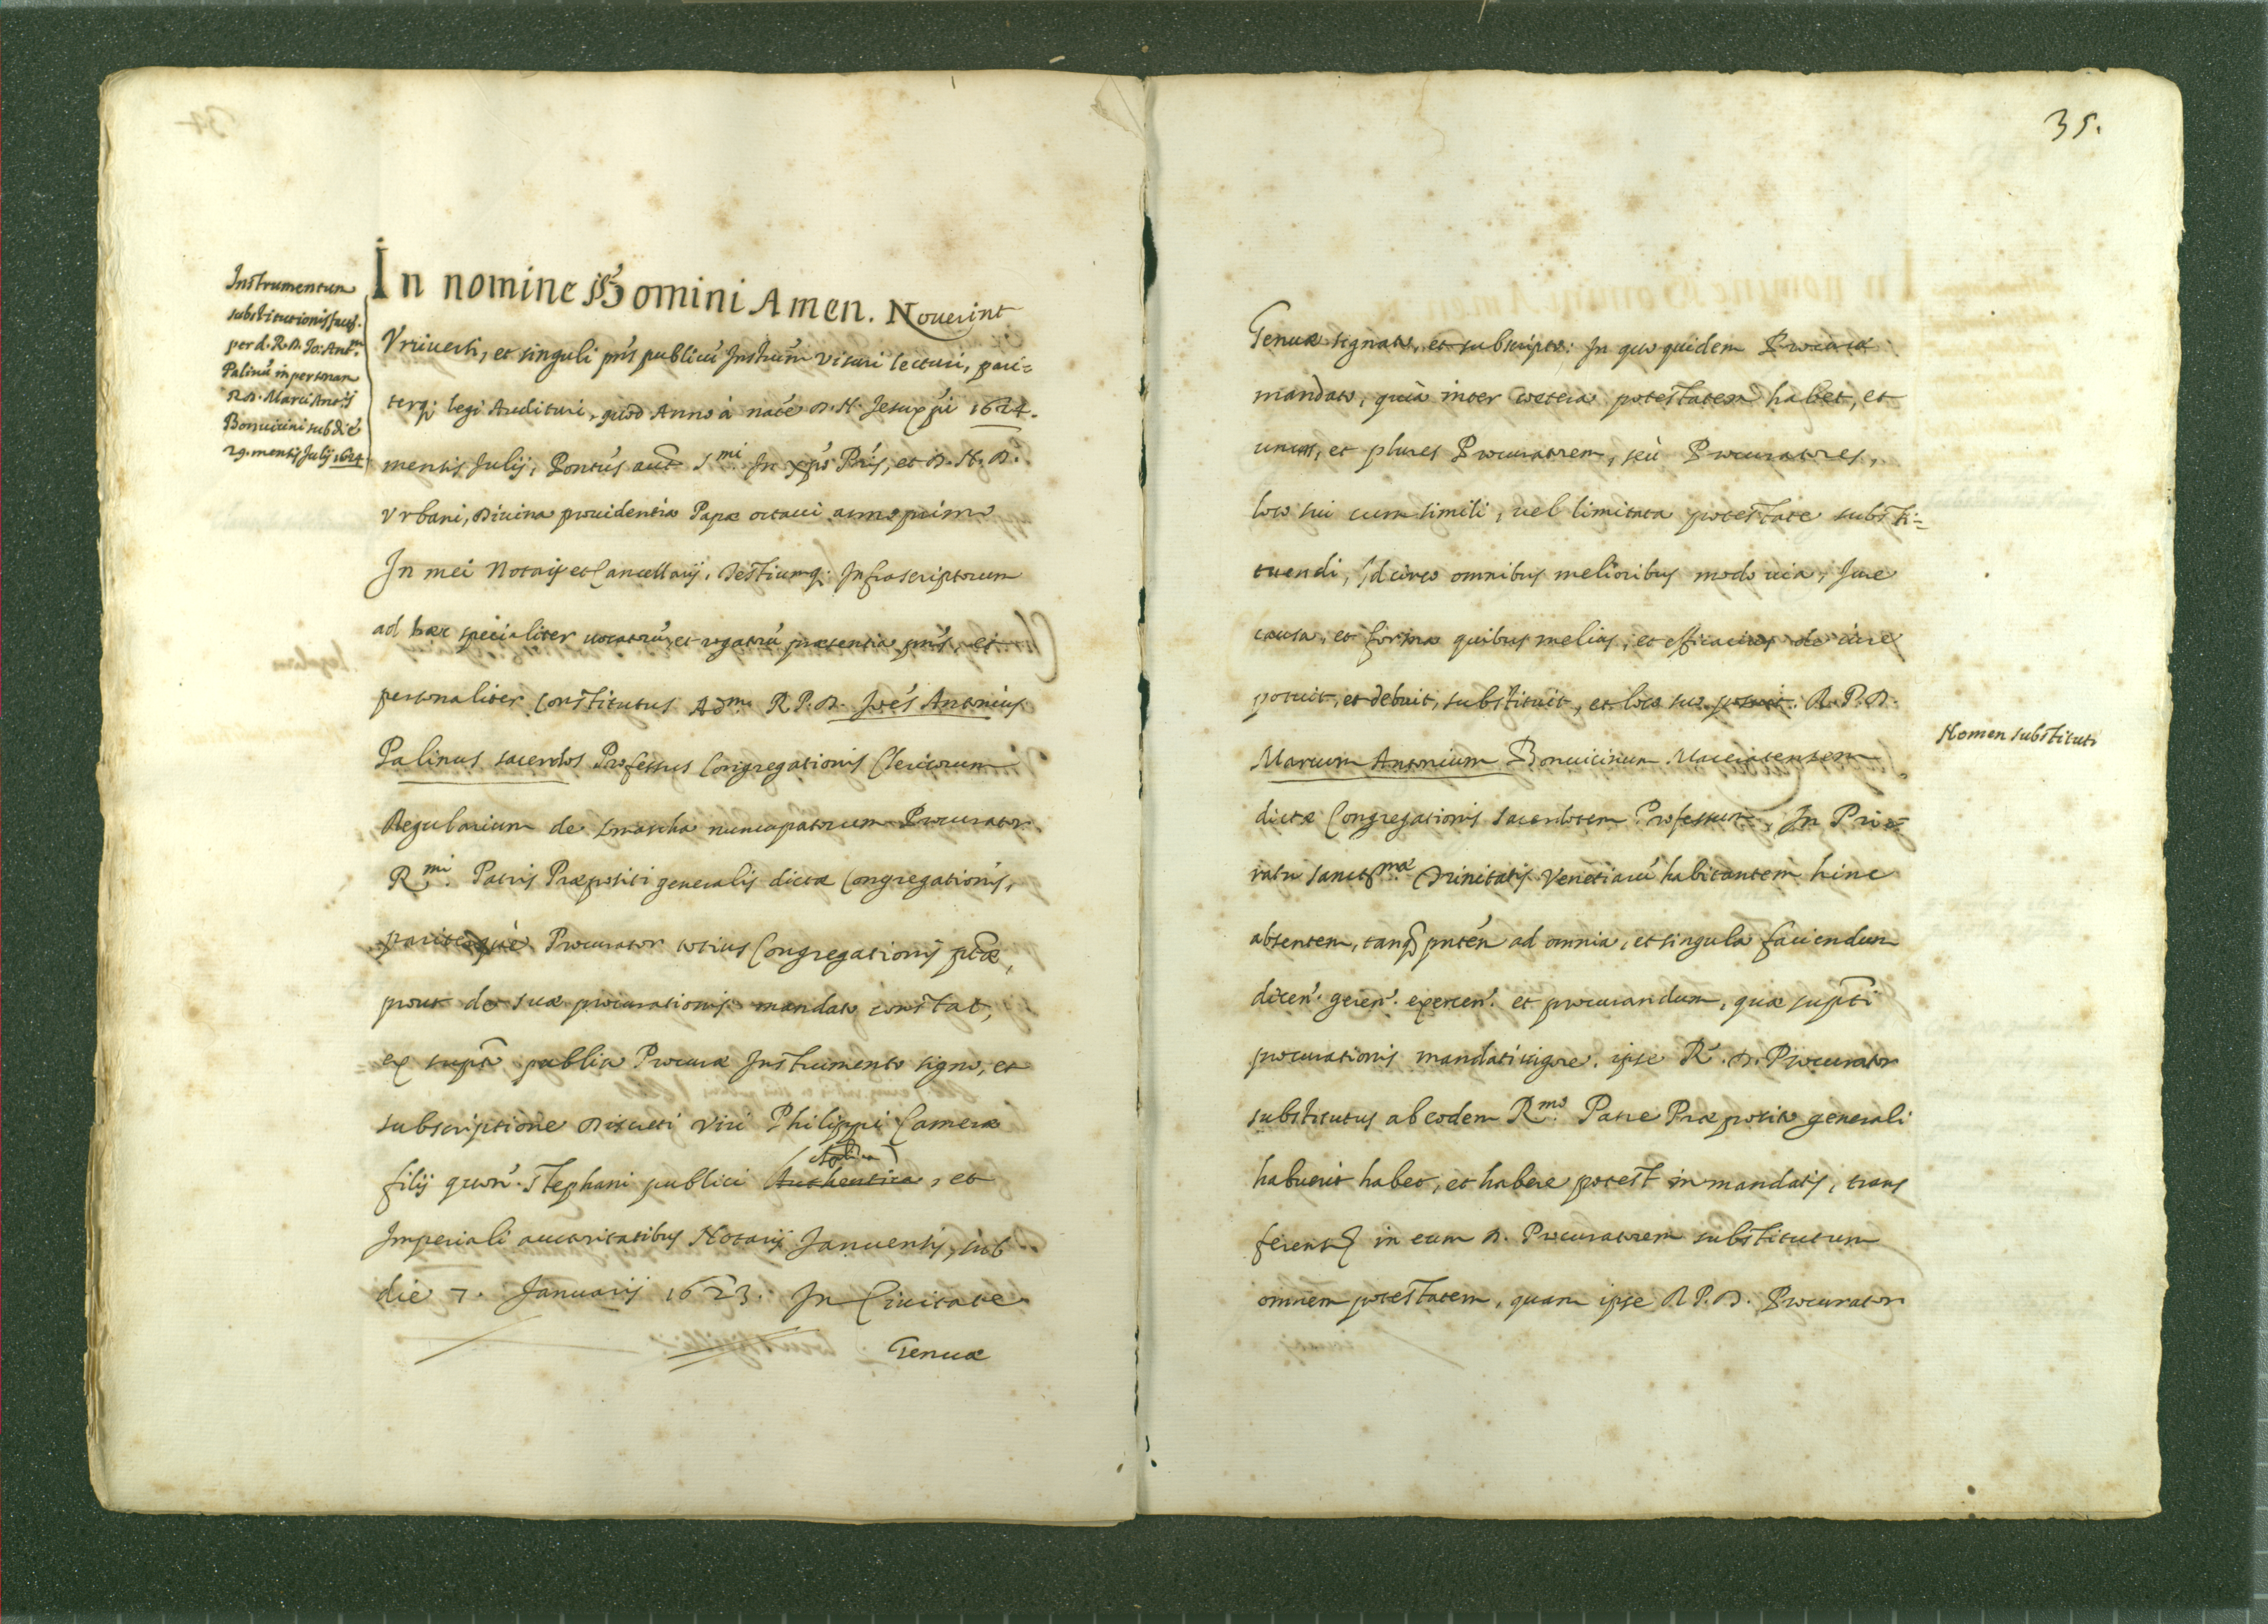 Instrumentum
substitutionis fact.
per d. R. D. Jo: Ant.m
Palinũ in personam
R. D. Marci Antonij
Bonuicini sub die
29. mensis Julij 1624
In nomine Domini Amen. Nouerint
Vniuersi, et singuli pñs publicũ Instrum̃ visuri lecturi, pari=
terq; legi Audituri, quod Anno à natẽ D. N. Jesu xp̃i 1624.
mensis Julij, Pontũs aut̃ S.mi In xp̃o Pr̃is, et D. N. D.
Vrbani, Diuina prouidentia Papæ octaui anno primo
In mei Notarij et Cancellarij, Testiumq; Infrascriptorum
ad hæc specialiter uocatorũ, et rogatorũ præsentia pñs, et
personaliter Constitutus Adm. R. P. D. Joẽs Antonius
Palinus sacerdos Professus Congregationis Clericorum
Regularium de Somascha nuncupatorum Procurator
R.mi Patris Præpositi generalis dictæ Congregationis,
pariterque Procurator totius Congregationis p̃tæ,
prout de suæ procurationis mandato constat,
ex supt̃o publico Procuræ Instrumento signo, et
subscriptione Discreti Viri Philippi Cameræ
filij quon. Stephani publici Authentica, et
Imperiali auctoritatibus Notarij Januensis, sub
die 7. Januarij 1623. In Ciuitate
Genuæ
35.
Genuæ signato, et subscripto: In quo quidem Procuræ
mandato, quià inter cœtera potestatem habet, et
unum, et plures Procuratorem, seù Procuratores,
loco sui cum simili, uel limitata potestate substi=
tuendi, Idcirco omnibus melioribus modo uia, Jure
causa, et forma quibus melius, et efficacius de iure
potuit, et debuit, substituit, et loco suo posuit R. P. D.
Nomen substituti
Marcum Antonium Bonuicinum
dictæ Congregationis sacerdotem Professum, In Prio=
ratu sanctis.mæ Trinitatis Venetiarũ habitantem hinc
absentem, tanq̃ pñtẽn ad omnia, et singula faciendum
dicen. geren. exercen. et procurandum, quæ supt̃i
procurationis mandati uigore, ipse R. D. Procurator
substitutus ab eodem R.mo Patre Præposito generali
habuerit habet, et habere potest in mandatis, trans
ferens in eum D. Procuratorem substitutum
omnem potestatem, quam ipse R. P. D. Procurator